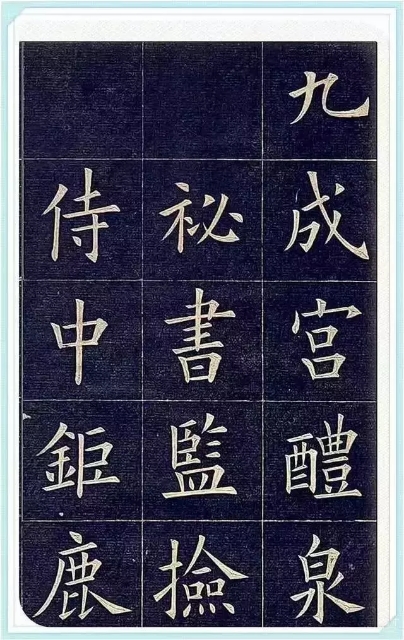 九成宮醴泉
祕書監撿
侍中鉅鹿